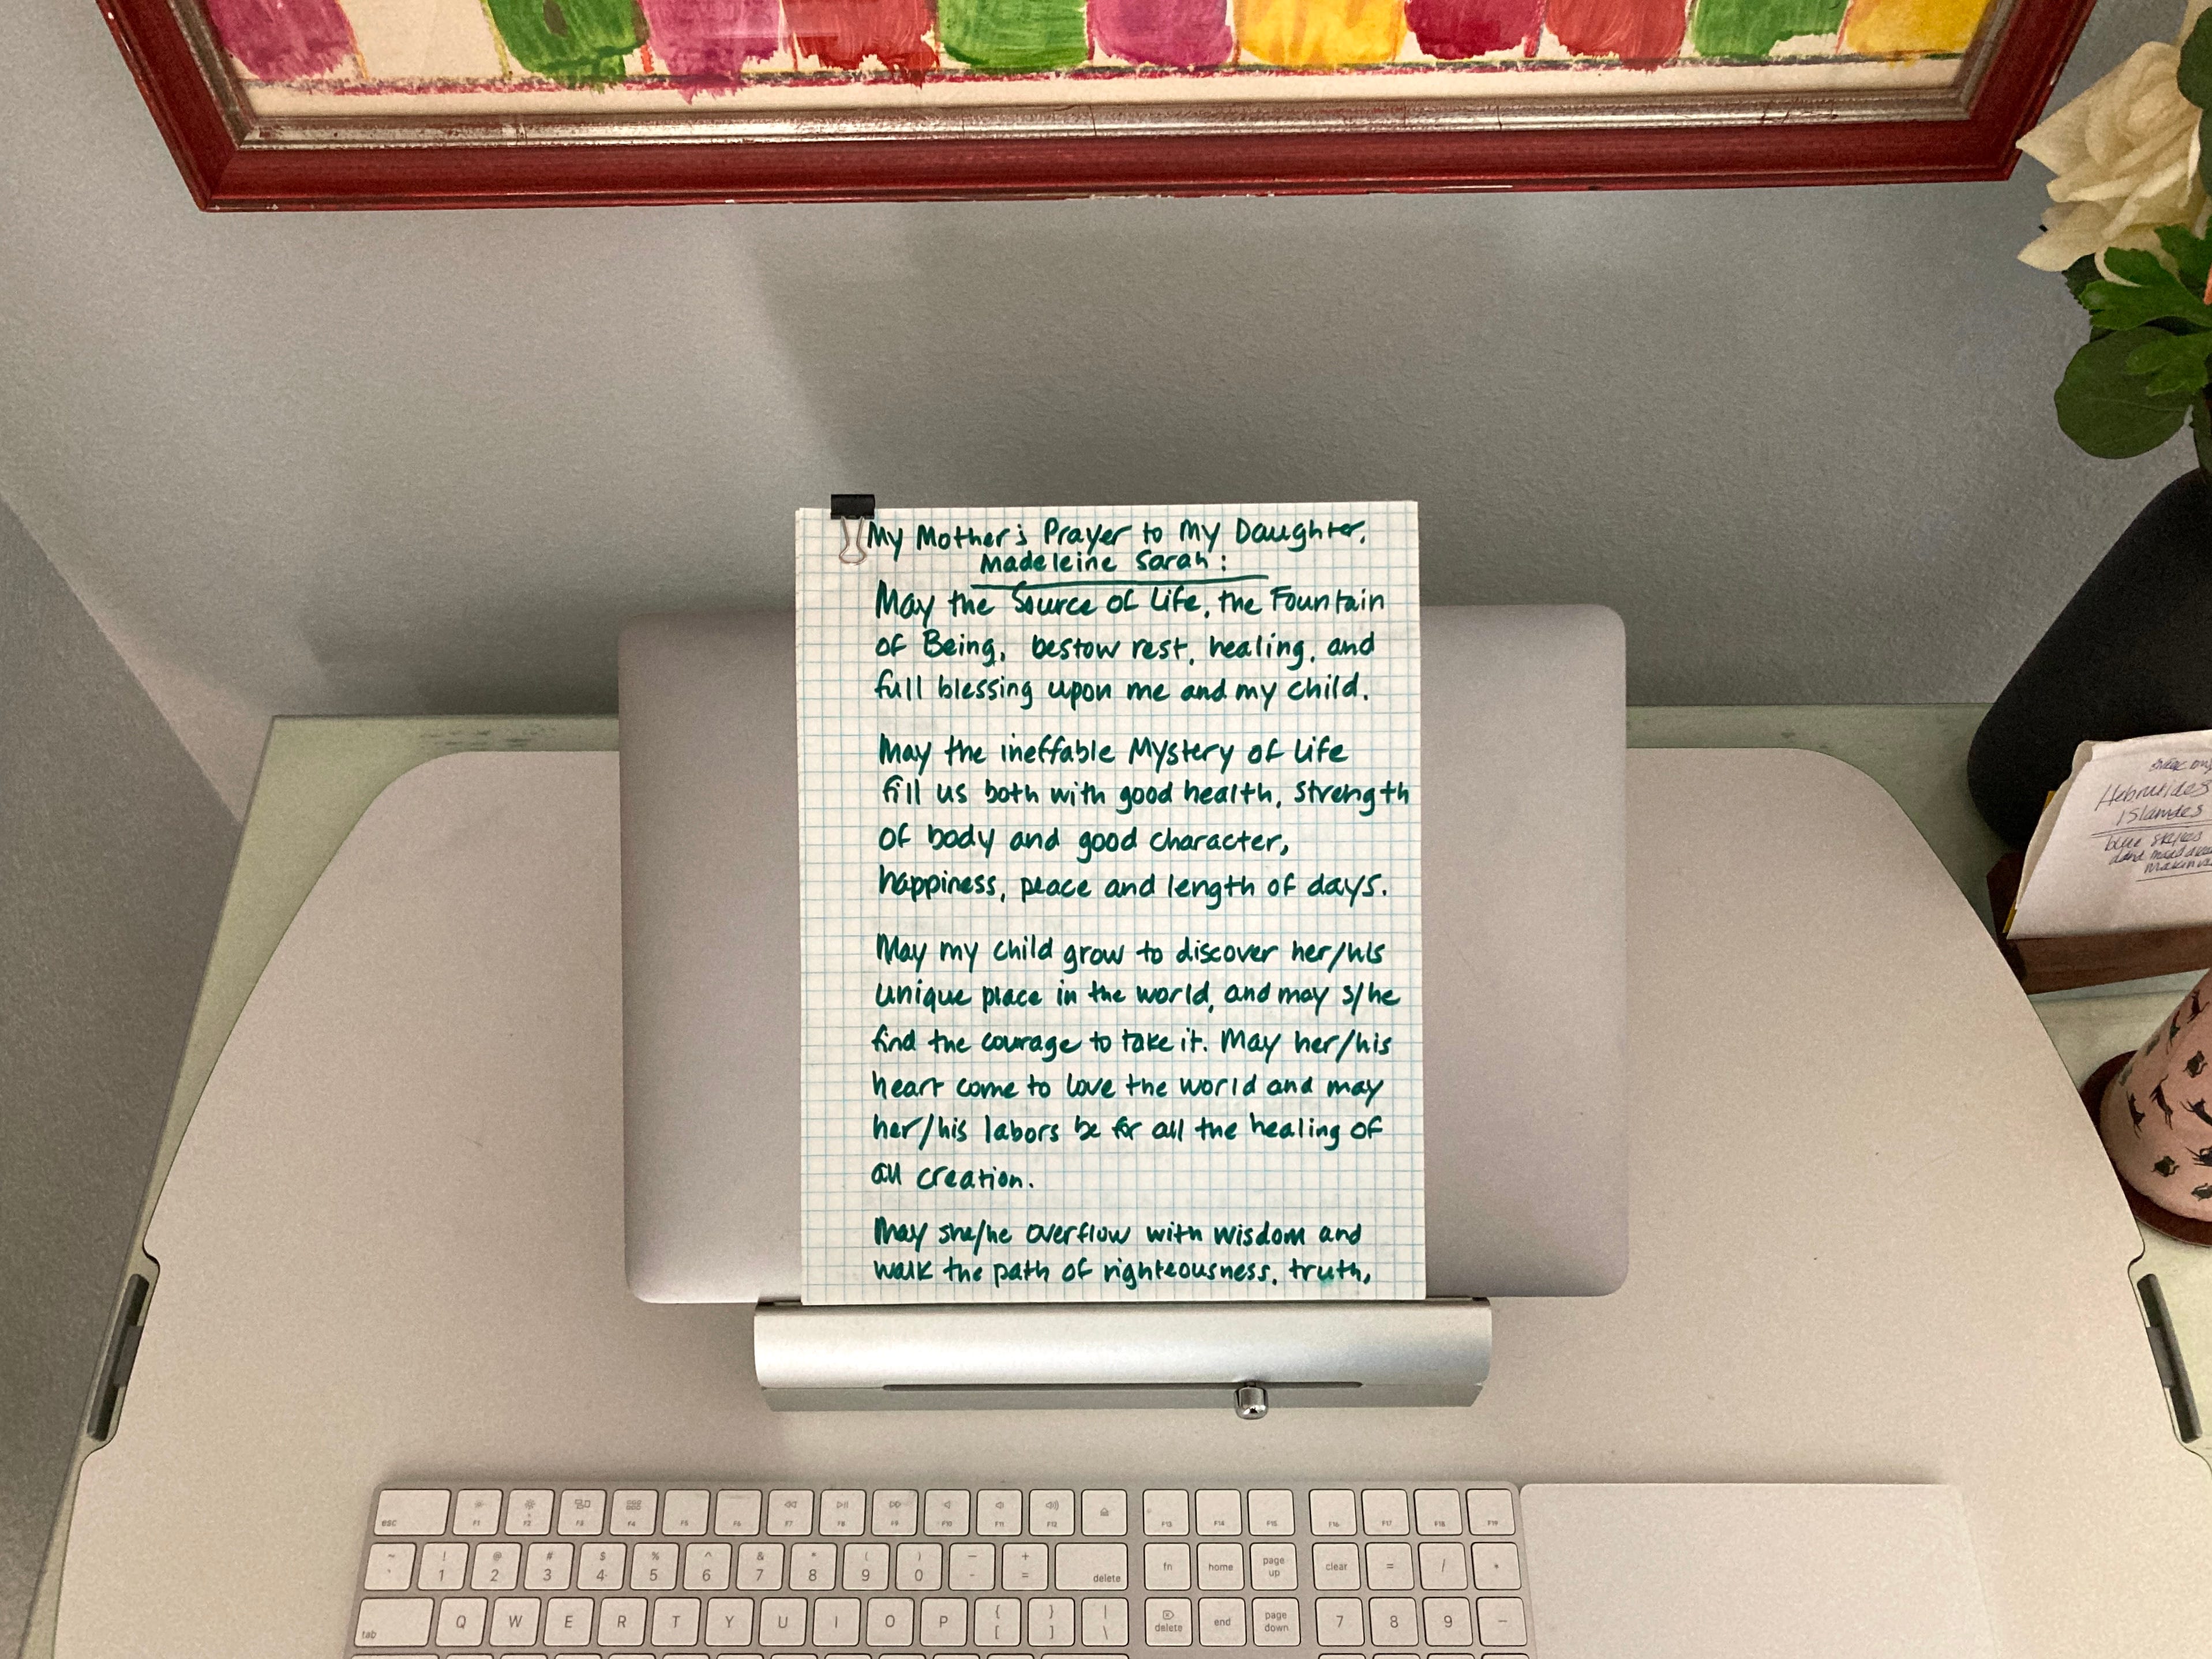 My Mother's Prayer to My Daughter,
Madeleine Sarah:
May the Source of Life, the Fountain
of Being, bestow rest, healing, and
full blessing upon me and my child.
May the ineffable Mystery of Life
fill us both with good health, strength
of body and good character,
happiness, peace and length of days.
May my child grow to discover her/his
unique place in the world, and may s/he
find the courage to take it. May her/his
heart come to love the world and may
her/his labors be for all the healing of
all creation.
May she/he overflow with wisdom and
walk the path of righteousness, truth,
Islandes
blue
esc F1 F2 F3 F4 F5 F6 F7 F8 F9 F10 F11 F12 F13 F14 F15 F16 F17 F18 F19
~ ` ! 1 @ 2 # 3 $ 4 % 5 ^ 6 & 7 * 8 ( 9 ) 0 _ - + = delete fn home page up clear = / *
tab Q W E R T Y U I O P { [ } ] | \ delete end page down 7 8 9 -